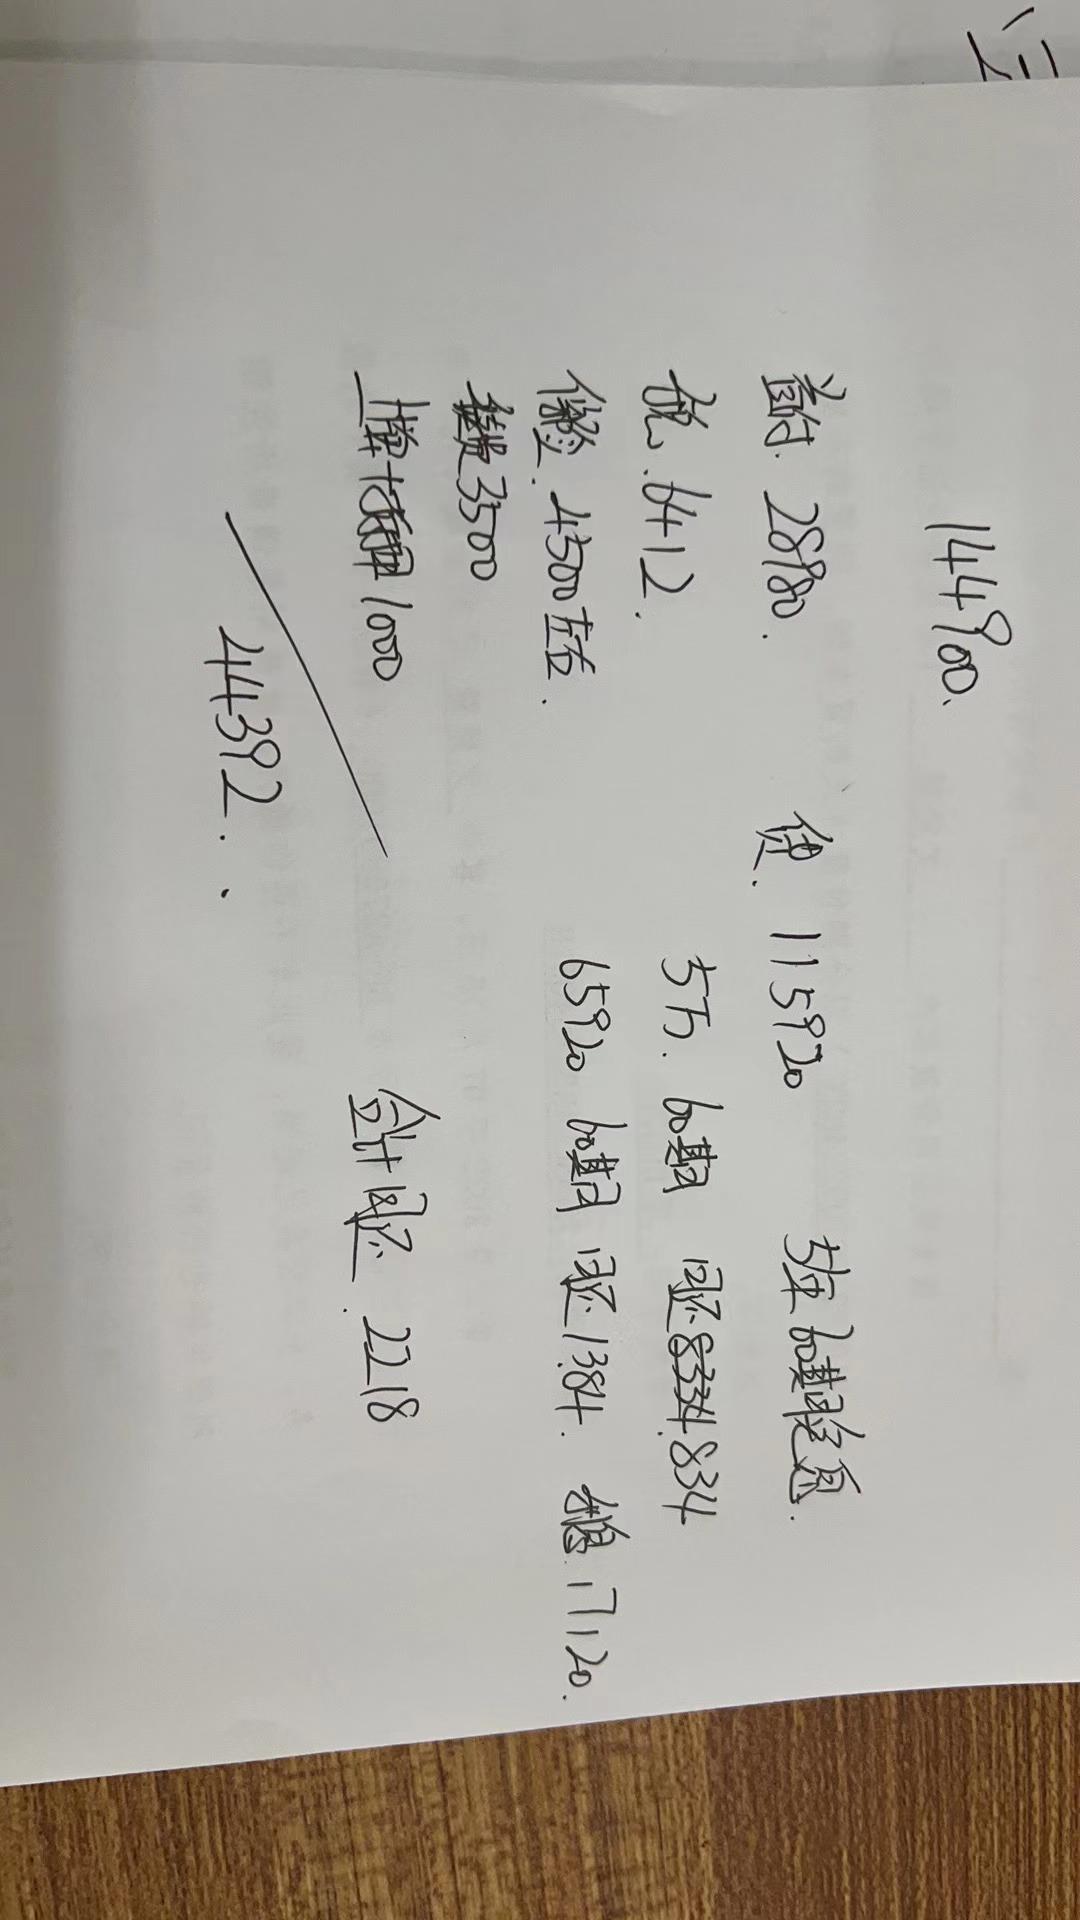 144900.
首付. 28980. 贷. 115920 5年60期免息.
税. 6412. 5万. 60期 月还. 834
保险. 4500左右. 65920 60期 月还1384. 利息. 17120.
3500
上牌+1000 合计月还. 2218
44392.